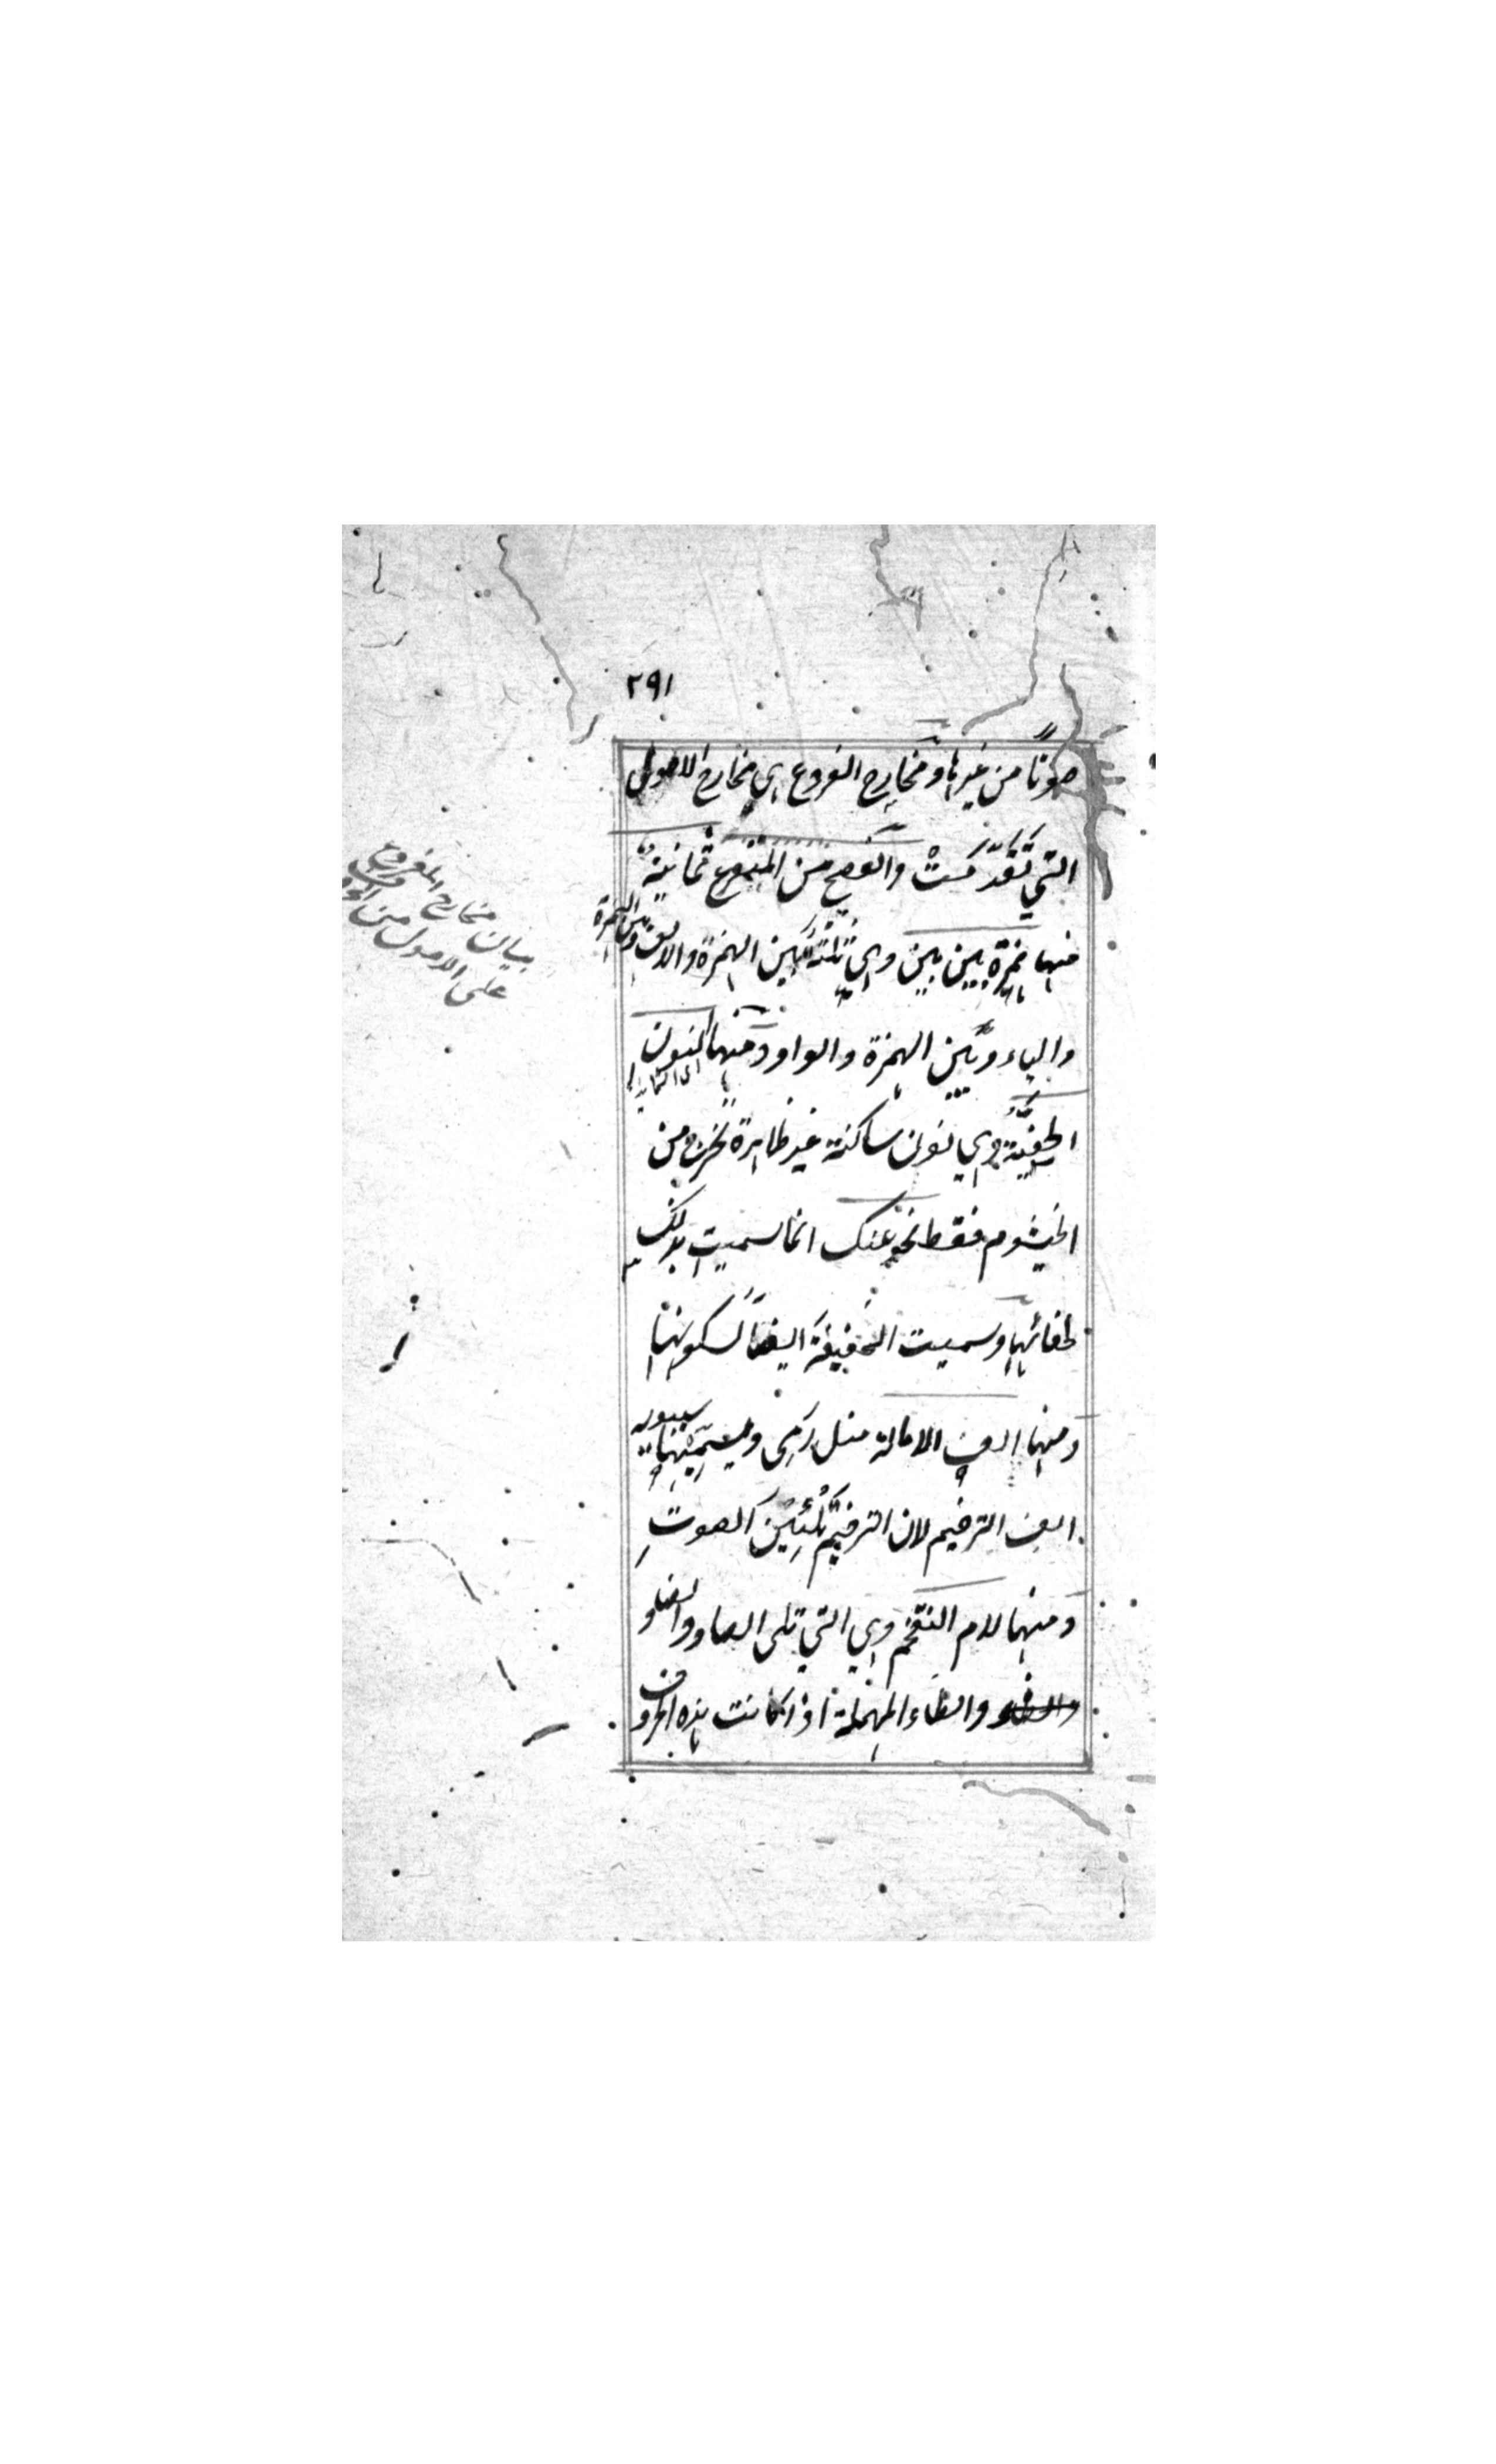 ٢٩١
صوتًا من غيرها ومخارج الفروع هي مخارج الاصول
التي تَقَدّمَتْ والفصيح من المتفرع ثمانيةٌ
منها همزة بين بين وهي ثلثةٌ بَين الهمزة والالف وبين الهمزة
والياء وبَين الهمزة والواو ومنها النون
الخفيّةُ وهي نون ساكنة غير ظاهرة تخرج من
الخيشوم فقط نحو عنك انما سميت بذلك
لخفائها وسميت الخفيفةَ ايضًا لسكونها
ومنها الف الامالة مثل رَمى ويسمّيها سيبويه
الف الترخيم لان الترخيم تَلْيِين الصوتِ
ومنها لام التفخم وهي التي تلى الصاد والضاد
والطاء المهملة اذا كانت هذه الحروف
بيان مخارج المفروع
على الاصول من